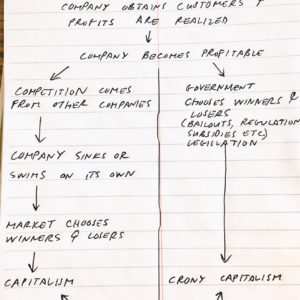 COMPANY OBTAINS CUSTOMERS &
PROFITS ARE REALIZED
COMPANY BECOMES PROFITABLE
COMPETITION COMES
FROM OTHER COMPANIES
COMPANY SINKS OR
SWIMS ON ITS OWN
MARKET CHOOSES
WINNERS & LOSERS
CAPITALISM
GOVERNMENT
CHOOSES WINNERS &
LOSERS
(BAILOUTS, REGULATION
SUBSIDIES ETC)
LEGISLATION
CRONY CAPITALISM